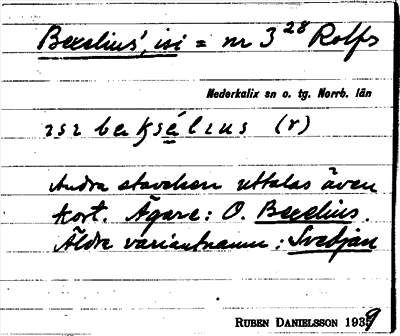 Bexelius', isi = nr 3²⁸ Rolfs
Nederkalix sn o. tg. Norrb. län
ɪsɪ beksélɪus (r)
Andra stavelsen uttalas även
kort. Ägare: O. Bexelius.
Äldre variantnamn: Svedjan
RUBEN DANIELSSON 1939